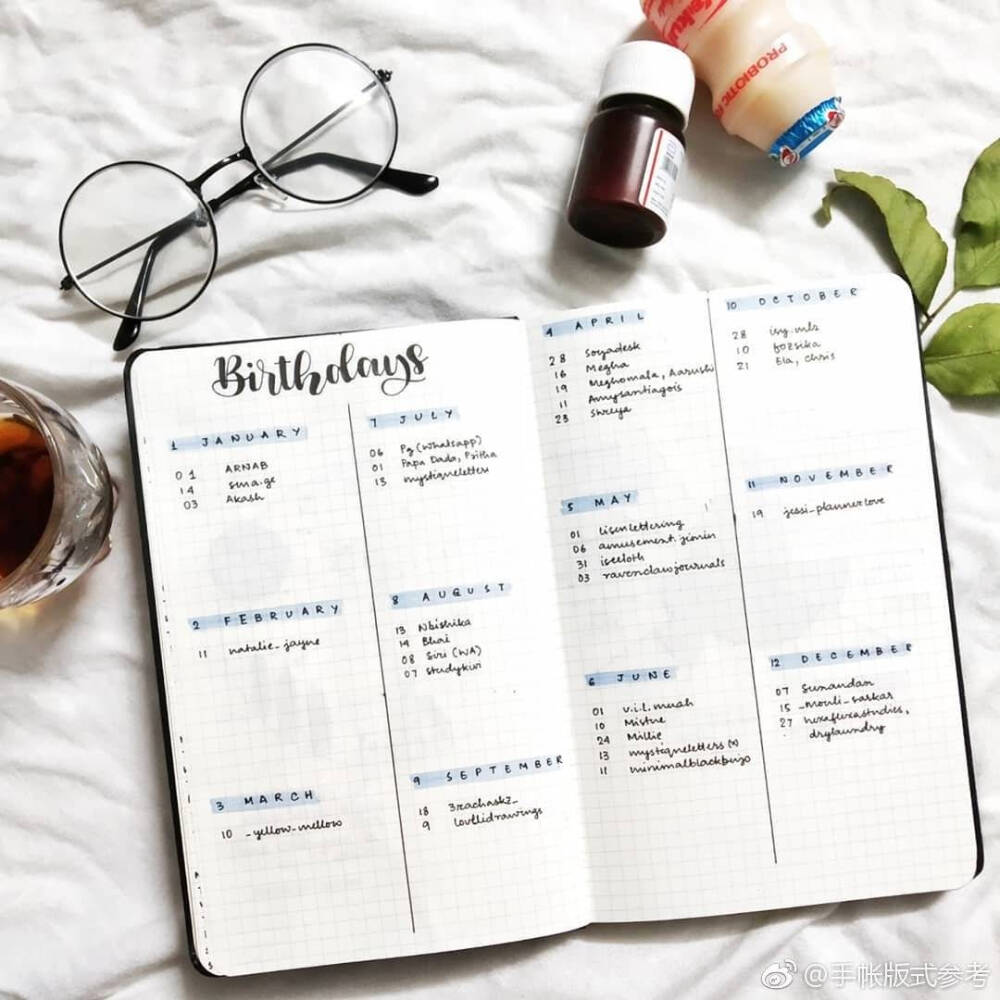 PROBIOTIC
Birthdays
1 JANUARY
01 ARNAB
14 sma.ge
03 Akash
2 FEBRUARY
11 natalie_jayne
3 MARCH
10 _yellow_mellow
7 JULY
06 Pg (Whatsapp)
01 Papu Dada, Pritha
13 mystiqueletters
8 AUGUST
13 Nbishika
19 Bhai
08 Siri (WA)
07 studykivi
9 SEPTEMBER
18 3rachaskz_
9 lovelidrawings
4 APRIL
28 Soyadesk
16 Megha
19 Meghomala, Aarushi
11 Amysantiagois
23 Shreya
5 MAY
01 lisenlettering
06 amusement.jimin
31 iseeloth
03 ravenclawjournals
6 JUNE
01 v.i.l.muah
10
24 Millie
13 mystiqueletters (x)
11 minimalblackbujo
10 OCTOBER
28
10 fozsika
21 Ela, Chris
11 NOVEMBER
19 jessi_plannerlove
12 DECEMBER
07 Sunandan
15 _mouli_sarkar
27 hexafluxastudies,
drylaundry
@手帐版式参考